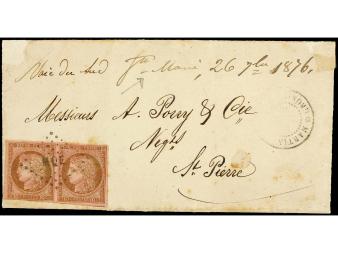 Voie du Sud Ste Marie, 26 7bre 1876.
Messieurs A. Pory & Cie
Negts
St. Pierre
MARTIN